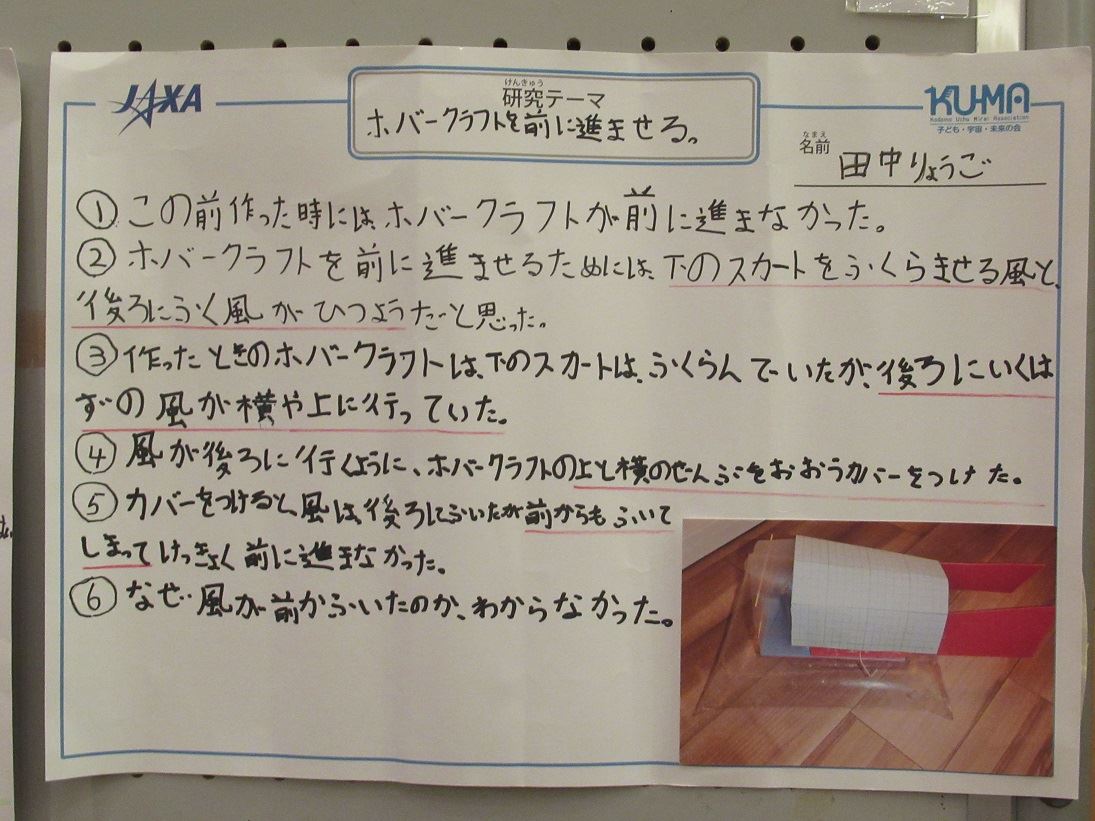 JAXA
けんきゅう
研究テーマ
ホバークラフトを前に進ませる。
KU-MA
Kodomo Uchu Mirai Association
子ども・宇宙・未来の会
なまえ
名前
田中りょうご
①この前作った時には、ホバークラフトが前に進まなかった。
②ホバークラフトを前に進ませるためには、下のスカートをふくらませる風と、
後ろにふく風がひつようだと思った。
③作ったときのホバークラフトは、下のスカートは、ふくらんでいたが、後ろにいくは
ずの風が横や上に行っていた。
④風が後ろに行くように、ホバークラフトの上と横のぜんぶをおおうカバーをつけた。
⑤カバーをつけると、風は、後ろにふいたが前からもふいて
しまってけっきょく前に進まなかった。
⑥なぜ風が前からふいたのか、わからなかった。